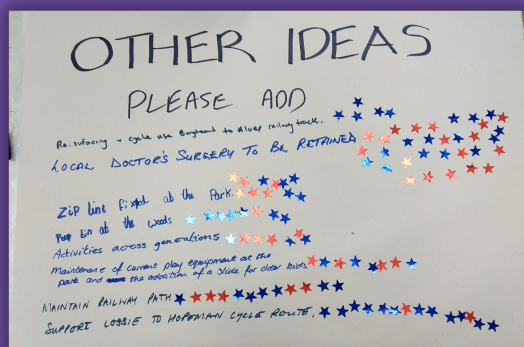 OTHER IDEAS
PLEASE ADD
Re-sufacing + cycle use Burghead to railway track.
LOCAL DOCTOR'S SURGERY TO BE RETAINED
Zip line fixed at the Park
at the woods
Activities across generations
Maintenance of current play equipment at the
park and the addition of a slide for older kids
MAINTAIN RAILWAY PATH
SUPPORT LOSSIE TO HOPEMAN CYCLE ROUTE.